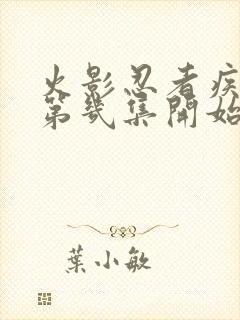 火影忍者疾
第幾集開始
葉小敏